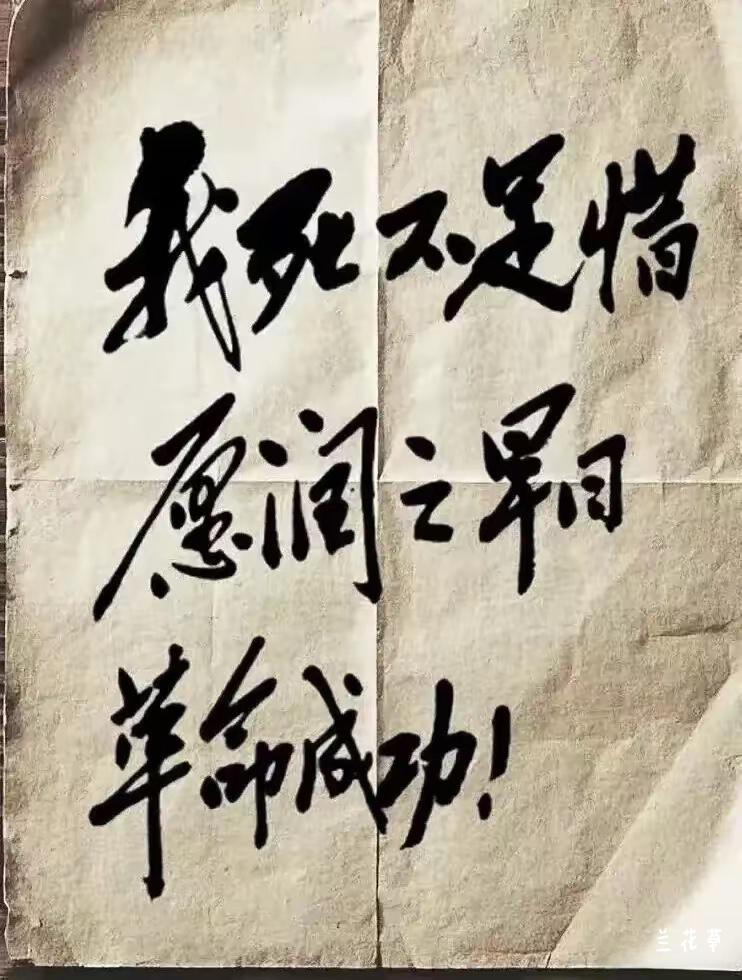 我死不足惜
愿润之早日
革命成功!
兰花草